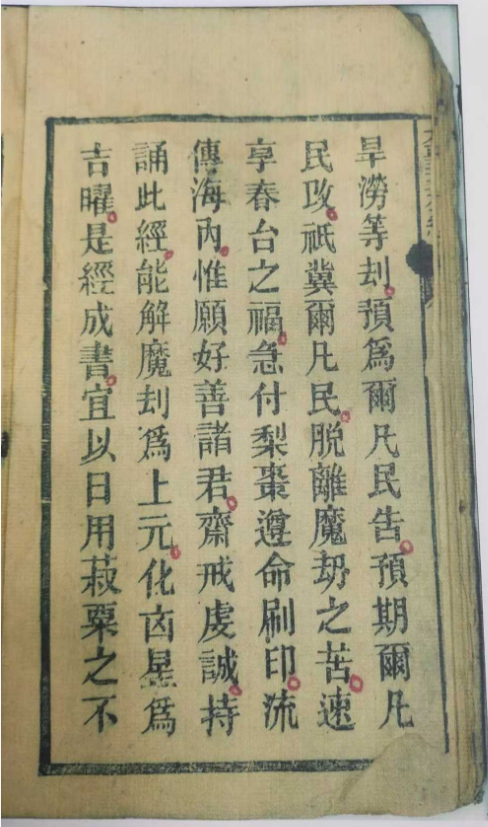 旱澇等刦預爲爾凡民告預期爾凡
民攺祇兾爾凡民脫離魔刼之苦速
享春台之福急付梨棗遵命刷印流
傳海內惟願好善諸君齋戒虔誠持
誦此經能解魔刦爲上元化凶星爲
吉曜是經成書宜以日用菽粟之不